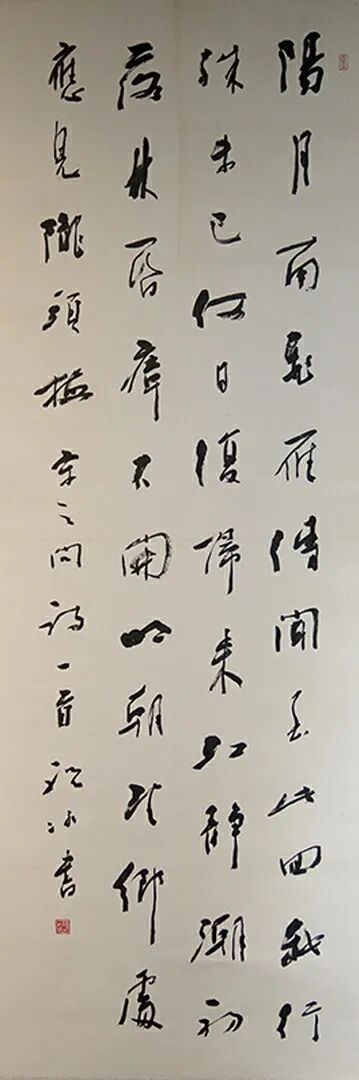 陽月南飛雁傳聞至此回我行
殊未已何日復歸來江靜潮初
落林昏瘴不開明朝望鄉處
應見隴頭梅宋之問詩一首冰書